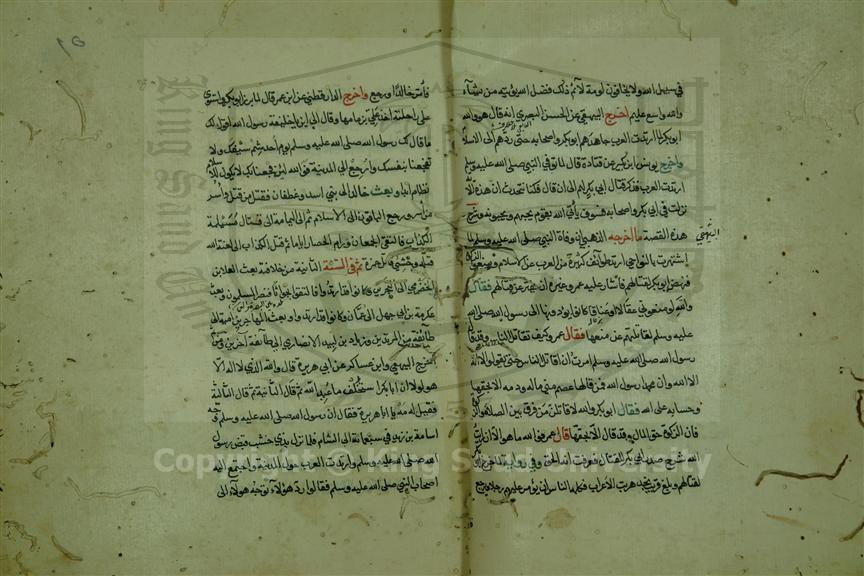 في سبيل الله ولا يخافون لومة لائم ذلك فضل الله يؤتيه من يشاء
والله واسع عليم اخرج البيهقي عن الحسن البصري انه قال هو والله
ابو بكر لما ارتدت العرب جاهدهم ابو بكر واصحابه حتى ردهم الى الاسلام
واخرج يونس ابن بكير عن قتادة قال لما توفي النبي صلى الله عليه وسلم
ارتدت العرب فذكر قتال ابي بكر لهم الى ان قال فكنا نتحدث ان هذه الآية
نزلت في ابي بكر واصحابه فسوف يأتي الله بقوم يحبهم ويحبونه وشرح
البيهقي
هذه القصة ما اخرجه الذهبي ان وفاة النبي صلى الله عليه وسلم لما
اشتهرت بالنواحي ارتد طوائف كثيرة من العرب عن الاسلام ومنعوا الزكاة
فنهض ابو بكر لقتالهم فاشار عليه عمر وغيره ان يفتر عن قتالهم فقال
والله لو منعوني عقالا او عناقا كانوا يؤدونها الى رسول الله صلى الله
عليه وسلم لقاتلتهم على منعها فقال عمر وكيف تقاتل الناس وقد قال
رسول الله صلى الله عليه وسلم امرت ان اقاتل الناس حتى يقولوا لا اله
الا الله وان محمدا رسول الله فمن قالها عصم مني ماله ودمه الا بحقها
وحسابه على الله فقال ابو بكر والله لاقاتلن من فرق بين الصلاة والزكاة
فان الزكوة حق المال وقد قال الا بحقها قال عمر فوالله ما هو الا ان رايت
الله شرح صدر ابي بكر للقتال فعرفت انه الحق وفي رواية لما خرج ابو بكر
لقتالهم وبلغ قريب نجد هربت الاعراب فكلمه الناس ان يؤمر عليهم رجلا ويرجع
فأمر خالدا ورجع واخرج الدارقطني عن ابن عمر قال لما برز ابو بكر واستوى
على راحلته اخذ علي بزمامها وقال الى اين يا خليفة رسول الله اقول لك
ما قال لك رسول الله صلى الله عليه وسلم يوم احد شم سيفك ولا
تفجعنا بنفسك وارجع الى المدينة فوالله لئن فجعنا بك لا يكون للاسلام
نظام ابدا وبعث خالدا الى بني اسد وغطفان فقتل من قتل واسر
من اسر ورجع الباقون الى الاسلام ثم الى اليمامة الى قتال مسيلمة
الكذاب فالتقى الجمعان ودام الحصار اياما ثم قتل الكذاب الى لعنة الله
قتله وحشي قاتل حمزة ثم في السنة الثانية من خلافته بعث العلا بن
الحضرمي الى البحرين وكانوا قد ارتدوا فالتقوا بجواثا فنصر المسلمون وبعث
عكرمة بن ابي جهل الى عمان وكانوا قد ارتدوا وبعث المهاجر بن امية الى
طائفة من المرتدين وزياد بن لبيد الانصاري الى طائفة اخرى ومن ثم
اخرج البيهقي وابن عساكر عن ابي هريرة قال والله الذي لا اله الا
هو لولا ان ابا بكر استخلف ما عبد الله ثم قال الثانية ثم قال الثالثة
فقيل له مه يا ابا هريرة فقال ان رسول الله صلى الله عليه وسلم وجه
اسامة بن زيد في سبعمائة الى الشام فلما نزل بذي خشب قبض رسول
الله صلى الله عليه وسلم وارتدت العرب حول المدينة واجتمع اليه
اصحاب النبي صلى الله عليه وسلم فقالوا رد هؤلاء توجه هؤلاء الى
Copyright © King Saud University
King Saud University